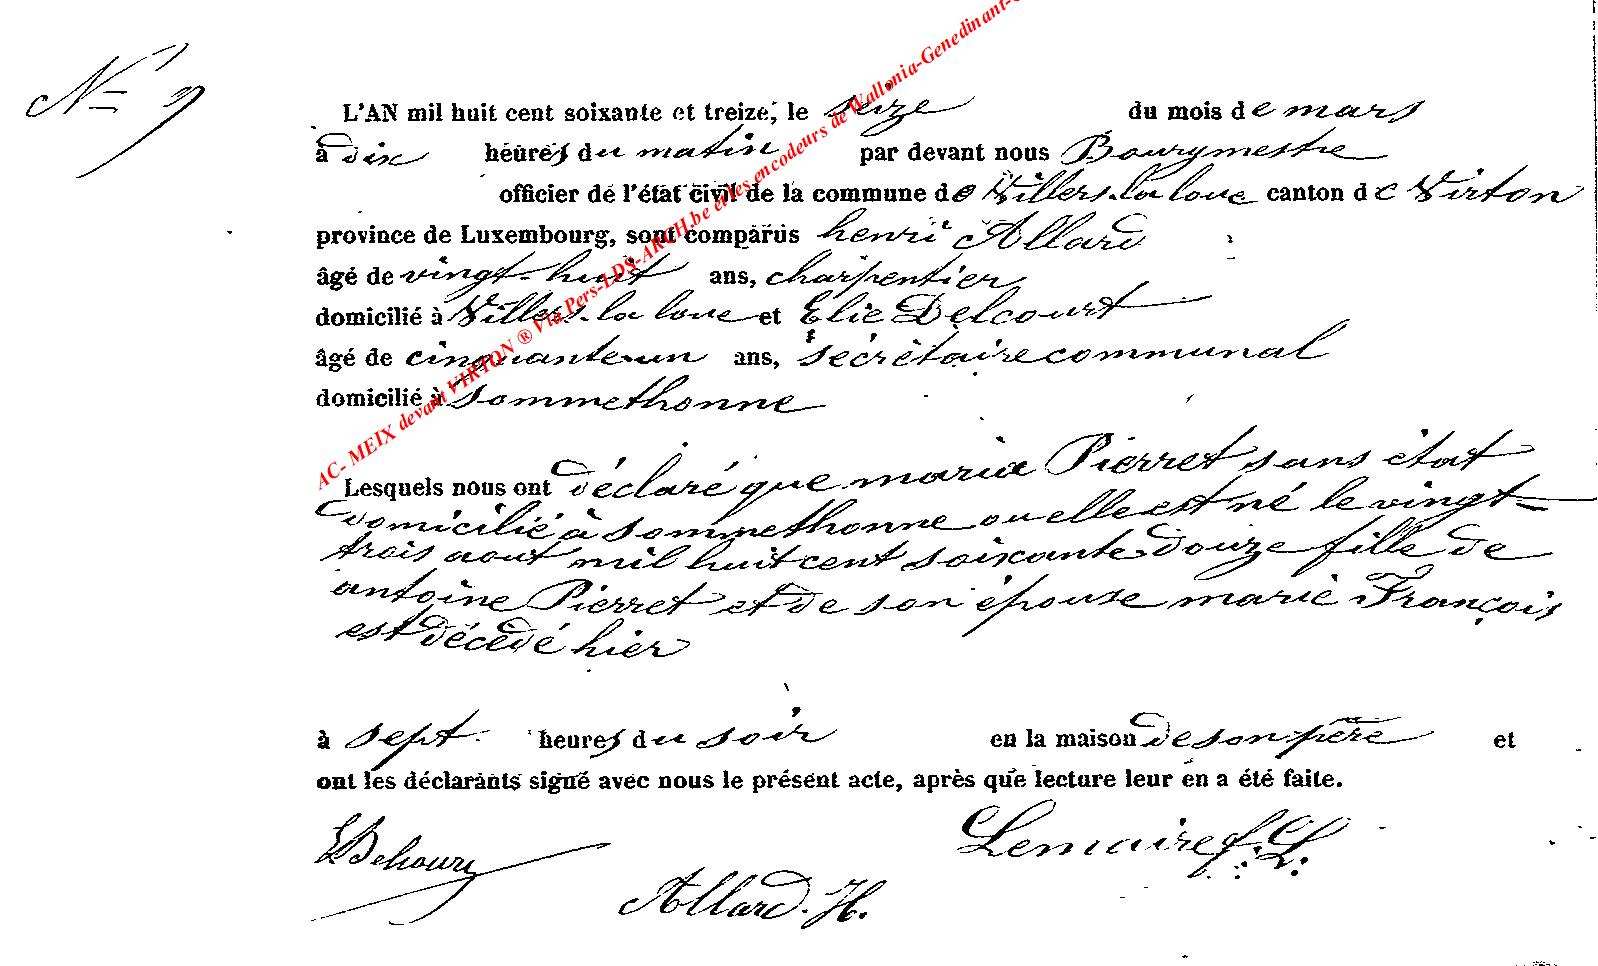 N= 9
L'AN mil huit cent soixante et treize, le seize du mois de mars
à dix heures du matin par devant nous Bourgmestre
officier de l'état civil de la commune de Villers-la loue canton de Virton
province de Luxembourg, sont comparus henri Allard
âgé de vingt-huit ans, charpentier
domicilié à Villers-la loue et Elie Delcourt
âgé de cinquante-un ans, sécrètaire communal
domicilié à Sommethonne
Lesquels nous ont déclaré que maria Pierret sans état
domicilié à Sommethonne ou elle est né le vingt-
trois aout mil huit cent soixante douze fille de
antoine Pierret et de son épouse marie François
est décédé hier
à sept heures du soir en la maison de son père et
ont les déclarants signé avec nous le présent acte, après que lecture leur en a été faite.
Lemaire f. L.
Allard. H.
AC- MEIX devant VIRTON ® Via Pers-LDS-ARCH.be et les encodeurs de Wallonia-Genedinant-